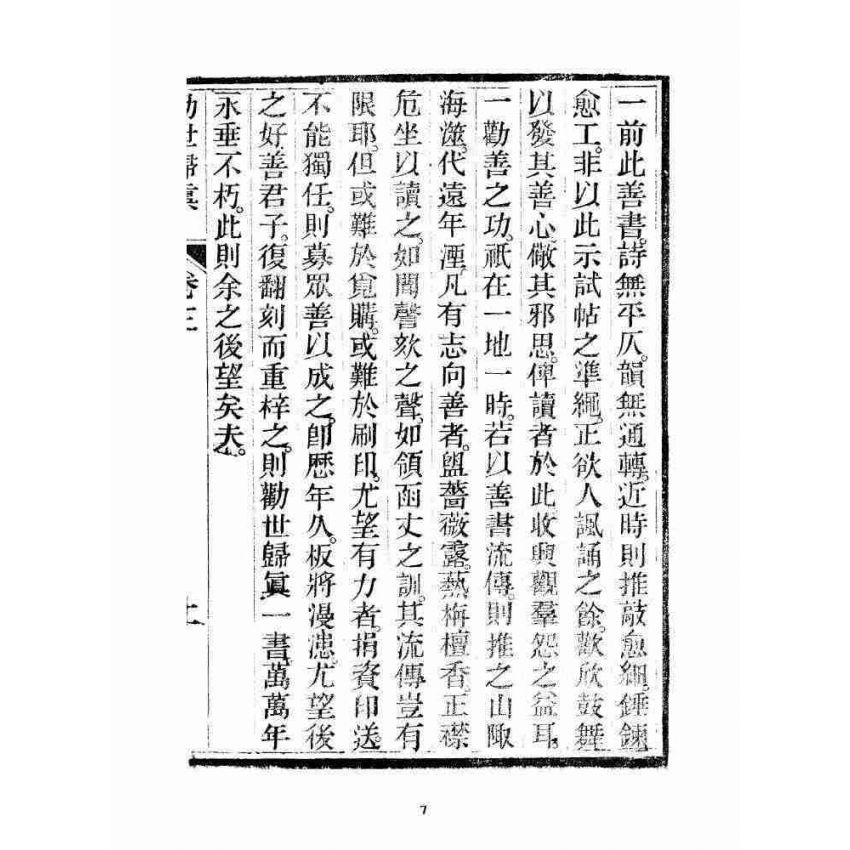 一前此善書。詩無平仄。韻無通轉。近時則推敲愈細。錘鍊
愈工。非以此示試帖之準繩。正欲人諷誦之餘。歡欣鼓舞
以發其善心。儆其邪思。俾讀者於此。收興觀羣怨之益耳。
一勸善之功。祇在一地一時。若以善書流傳。則推之山陬
海澨。代遠年湮。凡有志向善者。盥薔薇露。爇栴檀香。正襟
危坐以讀之。如聞謦欬之聲。如領函丈之訓。其流傳豈有
限耶。但或難於覓購。或難於刷印。尤望有力者。捐資印送。
不能獨任。則募眾善以成之。卽歷年久。板將漫漶。尤望後
之好善君子。復翻刻而重梓之。則勸世歸眞一書。萬萬年
永垂不朽。此則余之後望矣夫。
勸世歸眞 卷三
7